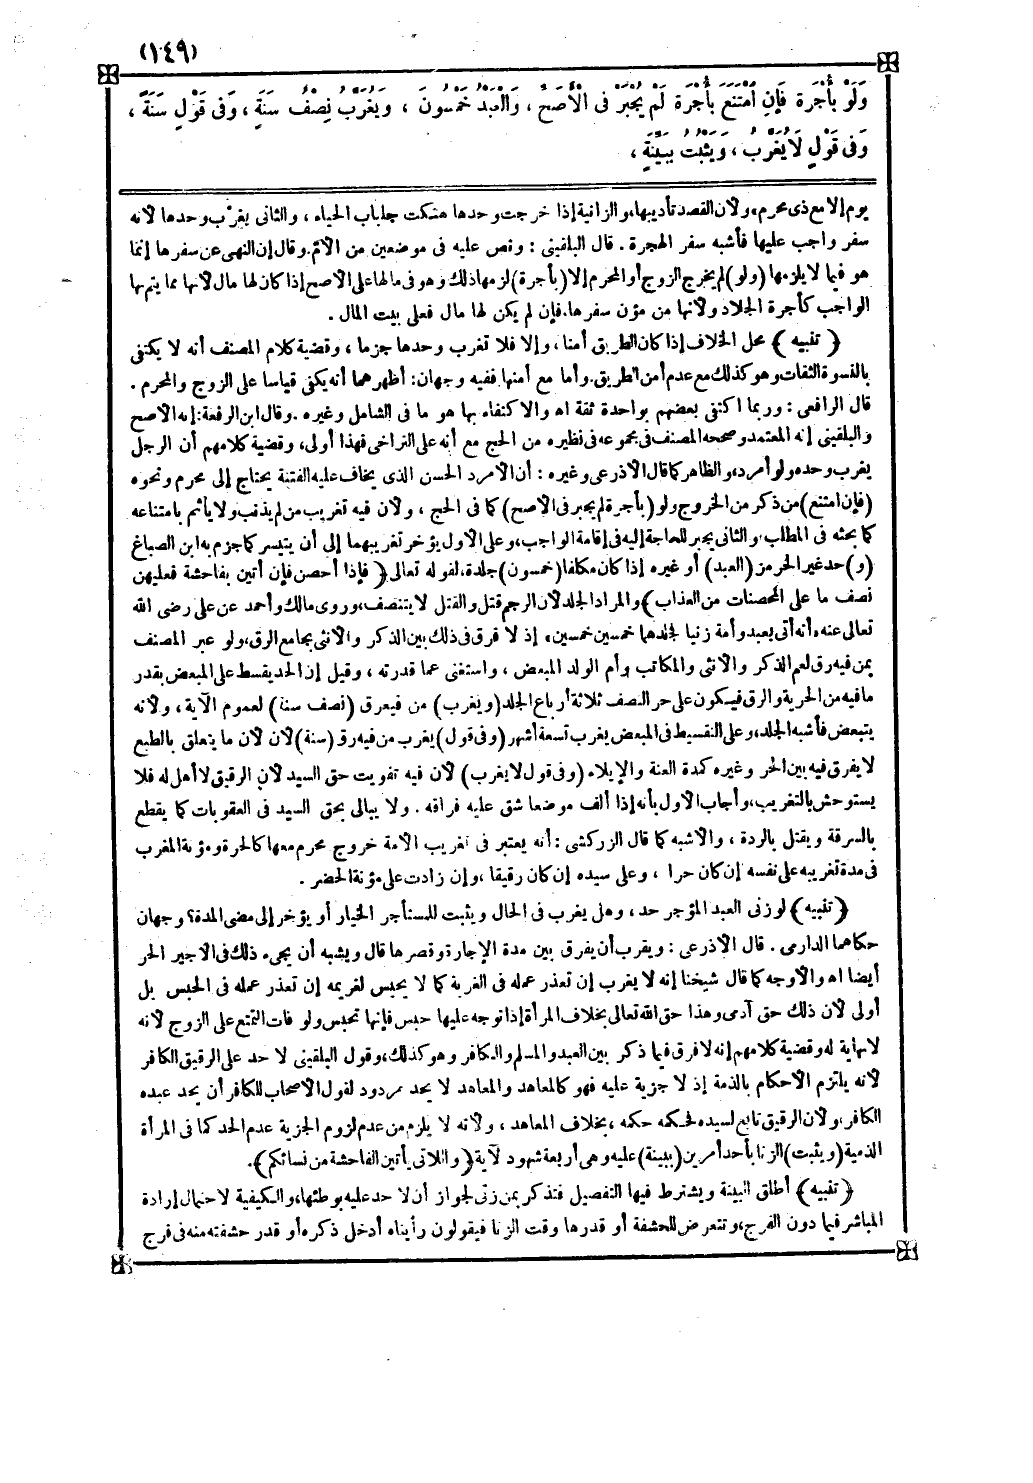 (١٤٩)
وَلَوْ بِأُجْرَةٍ فَإِنِ امْتَنَعَ بِأُجْرَةٍ لَمْ يُجْبَرْ فِى الْأَصَحِّ ، وَالْعَبْدُ خَمْسُونَ ، وَيُغَرَّبُ نِصْفَ سَنَةٍ ، وَفِى قَوْلٍ سَنَةً ،
وَفِى قَوْلٍ لَا يُغَرَّبُ ، وَيَثْبُتُ بِبَيِّنَةٍ ،
يوم إلا مع ذى محرم، ولأن القصد تأديبها، والزانية إذا خرجت وحدها هتكت جلباب الحياء ، والثانى يغرّب وحدها لأنه
سفر واجب عليها فأشبه سفر الهجرة . قال البلقينى : ونص عليه فى موضعين من الأم. وقال إن النهى عن سفرها إنما
هو فيما لا يلزمها (ولو) لم يخرج الزوج أو المحرم إلا (بأجرة) لزمها ذلك وهو فى مالها على الأصح إذا كان لها مال لأنها مما يتم بها
الواجب كأجرة الجلاد ولأنها من مؤن سفرها، فإن لم يكن لها مال فعلى بيت المال .
﴿ تنبيه ﴾ محل الخلاف إذا كان الطريق أمنا، وإلا فلا تغرب وحدها جزما ، وقضية كلام المصنف أنه لا يكتفى
بالنسوة الثقات وهو كذلك مع عدم أمن الطريق. وأما مع أمنها. ففيه وجهان: أظهرهما أنه يكفى قياسا على الزوج والمحرم .
قال الرافعى : وربما اكتفى بعضهم بواحدة ثقة اه والاكتفاء بها هو ما فى الشامل وغيره . وقال ابن الرفعة: إنه الأصح
والبلقينى إنه المعتمد وصححه المصنف فى مجموعه فى نظيره من الحج مع أنه على التراخى فهذا أولى، وقضية كلامهم أن الرجل
يغرب وحده ولو أمرد، والظاهر كما قال الأذرعى وغيره : أن الأمرد الحسن الذى يخاف عليه الفتنة يحتاج إلى محرم ونحوه
(فإن امتنع) من ذكر من الخروج ولو (بأجرة لم يجبر فى الأصح) كما فى الحج ، ولأن فيه تغريب من لم يذنب ولا يأثم بامتناعه
كما بحثه فى المطلب. والثانى يجبر للحاجة إليه فى إقامة الواجب، وعلى الأول يؤخر تغريبهما إلى أن يتيسر كما جزم به ابن الصباغ
(و) حد غير الحر من (العبد) أو غيره إذا كان مكلفا (خمسون) جلدة، لقوله تعالى ﴿ فإذا أحصن فإن أتين بفاحشة فعليهن
نصف ما على المحصنات من العذاب ﴾ والمراد الجلد لأن الرجم قتل والقتل لا يتنصف، وروى مالك وأحمد عن على رضى الله
تعالى عنه «أنه أتى بعبد وأمة زنيا فجلدهما خمسين خمسين» إذ لا فرق فى ذلك بين الذكر والأنثى بجامع الرق، ولو عبر المصنف
بمن فيه رق لعم الذكر والأنثى والمكاتب وأم الولد المبعض ، واستغنى عما قدرته ، وقيل إن الحد يقسط على المبعض بقدر
ما فيه من الحرية والرق فيكون على حر النصف ثلاثة أرباع الجلد (ويغرب) من فيه رق (نصف سنة) لعموم الآية ، ولأنه
يتبعض فأشبه الجلد، وعلى التقسيط فى المبعض يغرب تسعة أشهر (وفى قول) يغرب من فيه رق (سنة) لأن لأن ما يتعلق بالطبع
لا يفرق فيه بين الحر وغيره كمدة العنة والإيلاء (وفى قول لا يغرب) لأن فيه تفويت حق السيد لأن الرقيق لا أهل له فلا
يستوحش بالتغريب، وأجاب الأول بأنه إذا ألف موضعا شق عليه فراقه . ولا يبالى بحق السيد فى العقوبات كما يقطع
بالسرقة ويقتل بالردة ، والأشبه كما قال الزركشى : أنه يعتبر فى تغريب الأمة خروج محرم معها كالحرة ومؤنة المغرب
فى مدة تغريبه على نفسه إن كان حرا ، وعلى سيده إن كان رقيقا ، وإن زادت على مؤنة الحضر .
﴿ تنبيه ﴾ لو زنى العبد المؤجر حد ، وهل يغرب فى الحال ويثبت للمستأجر الخيار أو يؤخر إلى مضى المدة؟ وجهان
حكاهما الدارمى . قال الأذرعى : ويقرب أن يفرق بين مدة الإجارة وقصرها قال ويشبه أن يجىء ذلك فى الأجير الحر
أيضا اه والأوجه كما قال شيخنا إنه لا يغرب إن تعذر عمله فى الغربة كما لا يحبس لغريمه إن تعذر عمله فى الحبس بل
أولى لأن ذلك حق آدمى وهذا حق الله تعالى بخلاف المرأة إذا توجه عليها حبس فإنها تحبس ولو فات التمتع على الزوج لأنه
لا نهاية له وقضية كلامهم إنه لا فرق فيما ذكر بين العبد والمسلم والكافر وهو كذلك، وقول البلقينى لا حد على الرقيق الكافر
لأنه يلتزم الأحكام بالذمة إذ لا جزية عليه فهو كالمعاهد والمعاهد لا يحد مردود لقول الأصحاب للكافر أن يحد عبده
الكافر، ولأن الرقيق تابع لسيده فحكمه حكمه ، بخلاف المعاهد ، ولأنه لا يلزم من عدم لزوم الجزية عدم الحد كما فى المرأة
الذمية (ويثبت) الزنا بأحد أمرين (ببينة) عليه وهى أربعة شهود لآية ﴿ واللاتى يأتين الفاحشة من نسائكم ﴾.
﴿ تنبيه ﴾ أطلق البينة ويشترط فيها التفصيل فتذكر بمن زنى لجواز أن لا حد عليه بوطئها، والكيفية لاحتمال إرادة
المباشر فيما دون الفرج، وتتعرض للحشفة أو قدرها وقت الزنا فيقولون رأيناه أدخل ذكره أو قدر حشفته منه فى فرج